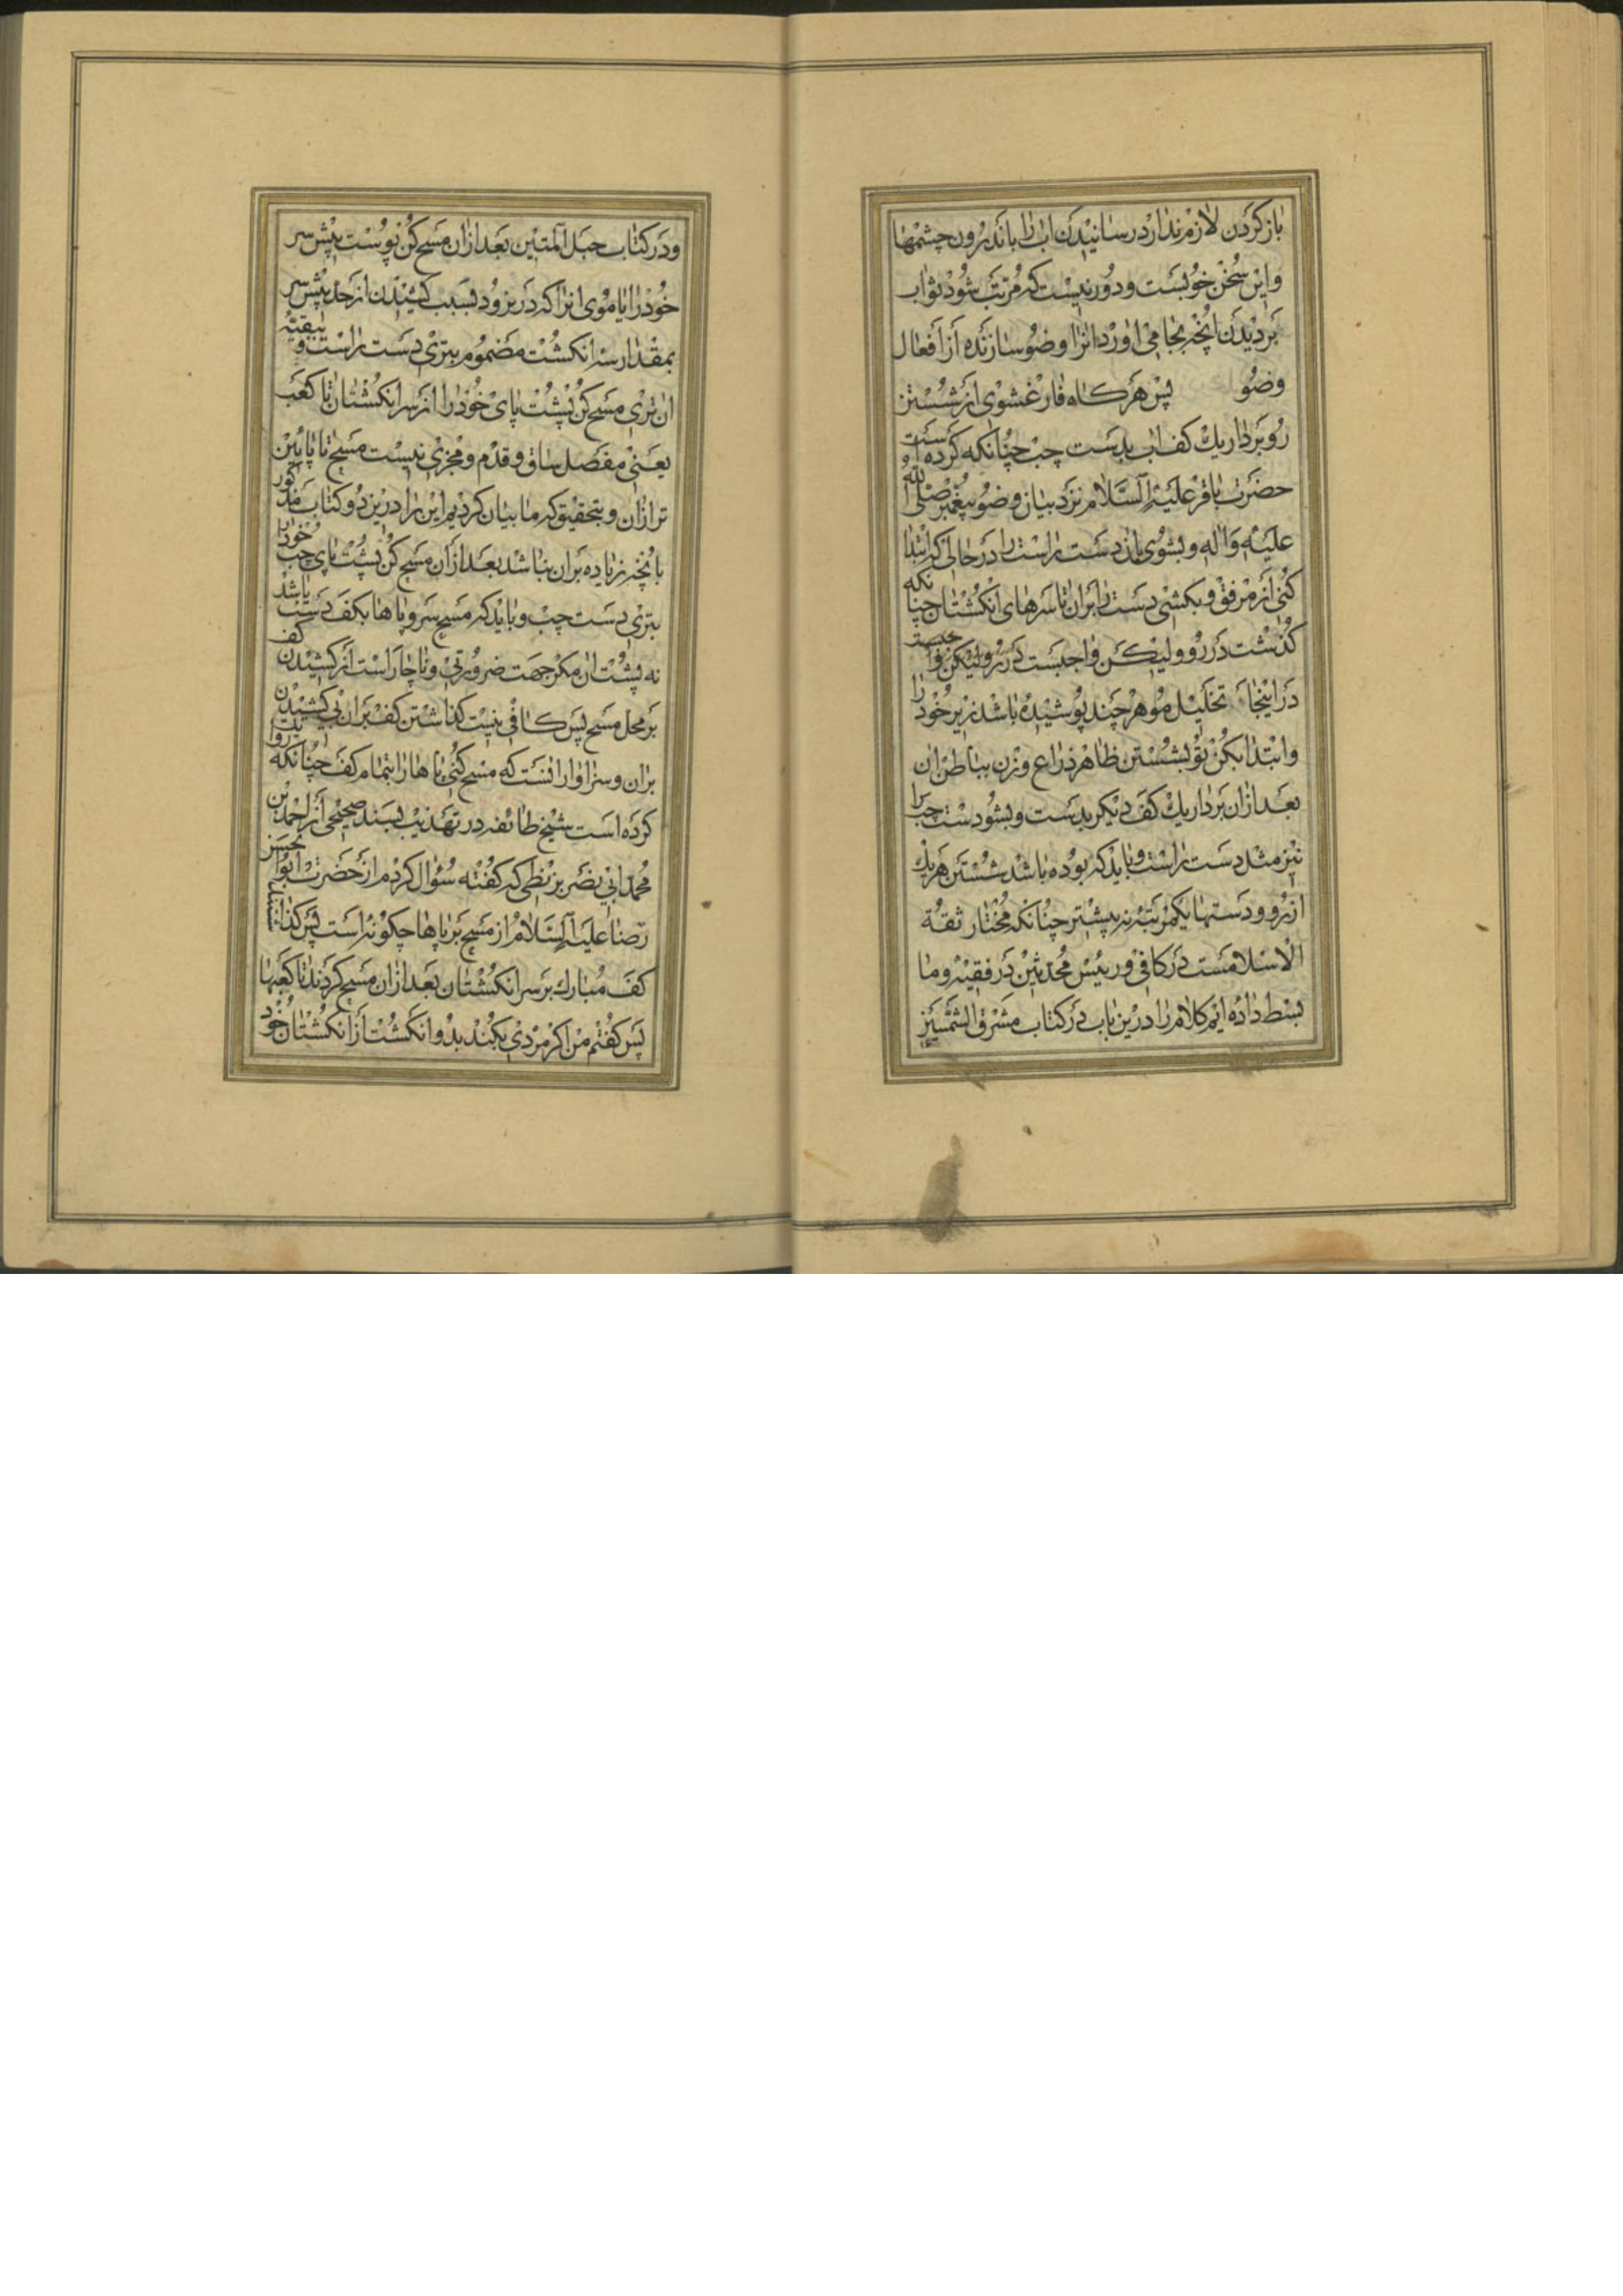 باز کردن لازم ندارد رسانیدن اب را باندرون چشمها
واین سخن خوبست ودور نیست که مرتب شود ثواب
بر دیدن انچه بجا می اورد انرا وضو سازنده از افعال
وضو پس هر کاه فارغ شوی از شستن
رو بردار یک کف اب بدست چپ چنانکه کرده است
حضرت باقر علیه السلام نزد بیان وضو پیغمبر صلی الله
علیه واله وبشوی بان دست راست را در حالی که ابتدا
کنی از مرفق وبکشی دست را بران تا سرهای انکشتان چنانکه
کذشت در رو ولیکن واجبست در رو ولیکن
در اینجا تخلیل مو هر چند پوشیده باشد زیر خود را
وابتدا بکن تو بشستن ظاهر ذراع وزن بباطن ان
بعد ازان بردار یک کف دیکر بدست وبشو دست چپ را
نیز مثل دست راست وباید که بوده باشد شستن هر یک
از رو ودستها یکمرتبه نه بیشتر چنانکه مختار ثقة
الاسلامست در کافی ورئیس محدثین در فقیه وما
بسط داده ایم کلام را درین باب در کتاب مشرق الشمسین
ودر کتاب حبل المتین بعد ازان مسح کن پوست پیش سر
خود را یا موی انرا که در نرود بسبب کشیدن از حد پیش سر
بمقدار سه انکشت مضموم بتری دست راست وببقیه
ان تری مسح کن پشت پای خود را از سر انکشتان تا کعب
یعنی مفصل ساق وقدم ومجزی نیست مسح تا پائین
تر ازان وبتحقیق که ما بیان کردیم این را درین دو کتاب مذکور
بانچه زیاده بران نباشد بعد ازان مسح کن پشت پای چپ خود را
بتری دست چپ وباید که مسح سر وپاها بکف دست باشد
نه پشت ان مکر جهت ضرورتی وناچار است از کشیدن کف
بر محل مسح پس کافی نیست کذاشتن کف بران بی کشیدن
بران وسزاوار انست که مسح کنی پاها را بتمام کف چنانکه
کرده است شیخ طائفه در تهذیب بسند صحیحی از احمد بن
محمد ابی نصر بزنطی که کفته سؤال کردم از حضرت ابو الحسن
رضا علیه السلام از مسح بر پاها چکونه است پس
کف مبارک بر سر انکشتان بعد ازان مسح کردند تا کعبها
پس کفتم من اکر مردی بکند بدو انکشت از انکشتان خود